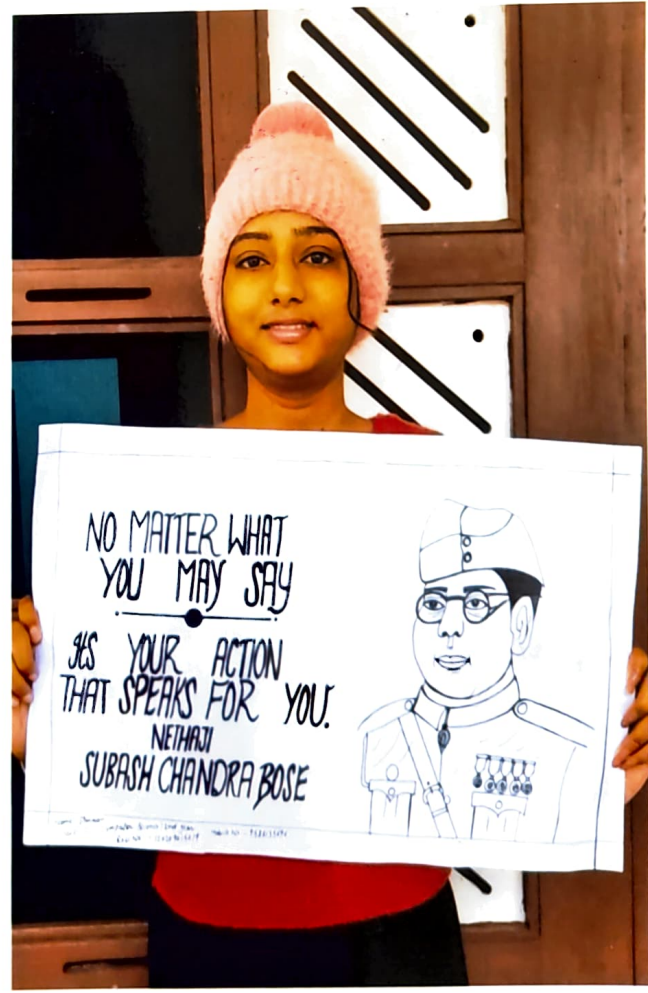 NO MATTER WHAT
YOU MAY SAY
ItS YOUR ACTION
THAT SPEAKS FOR YOU.
NETHAJI
SUBASH CHANDRA BOSE